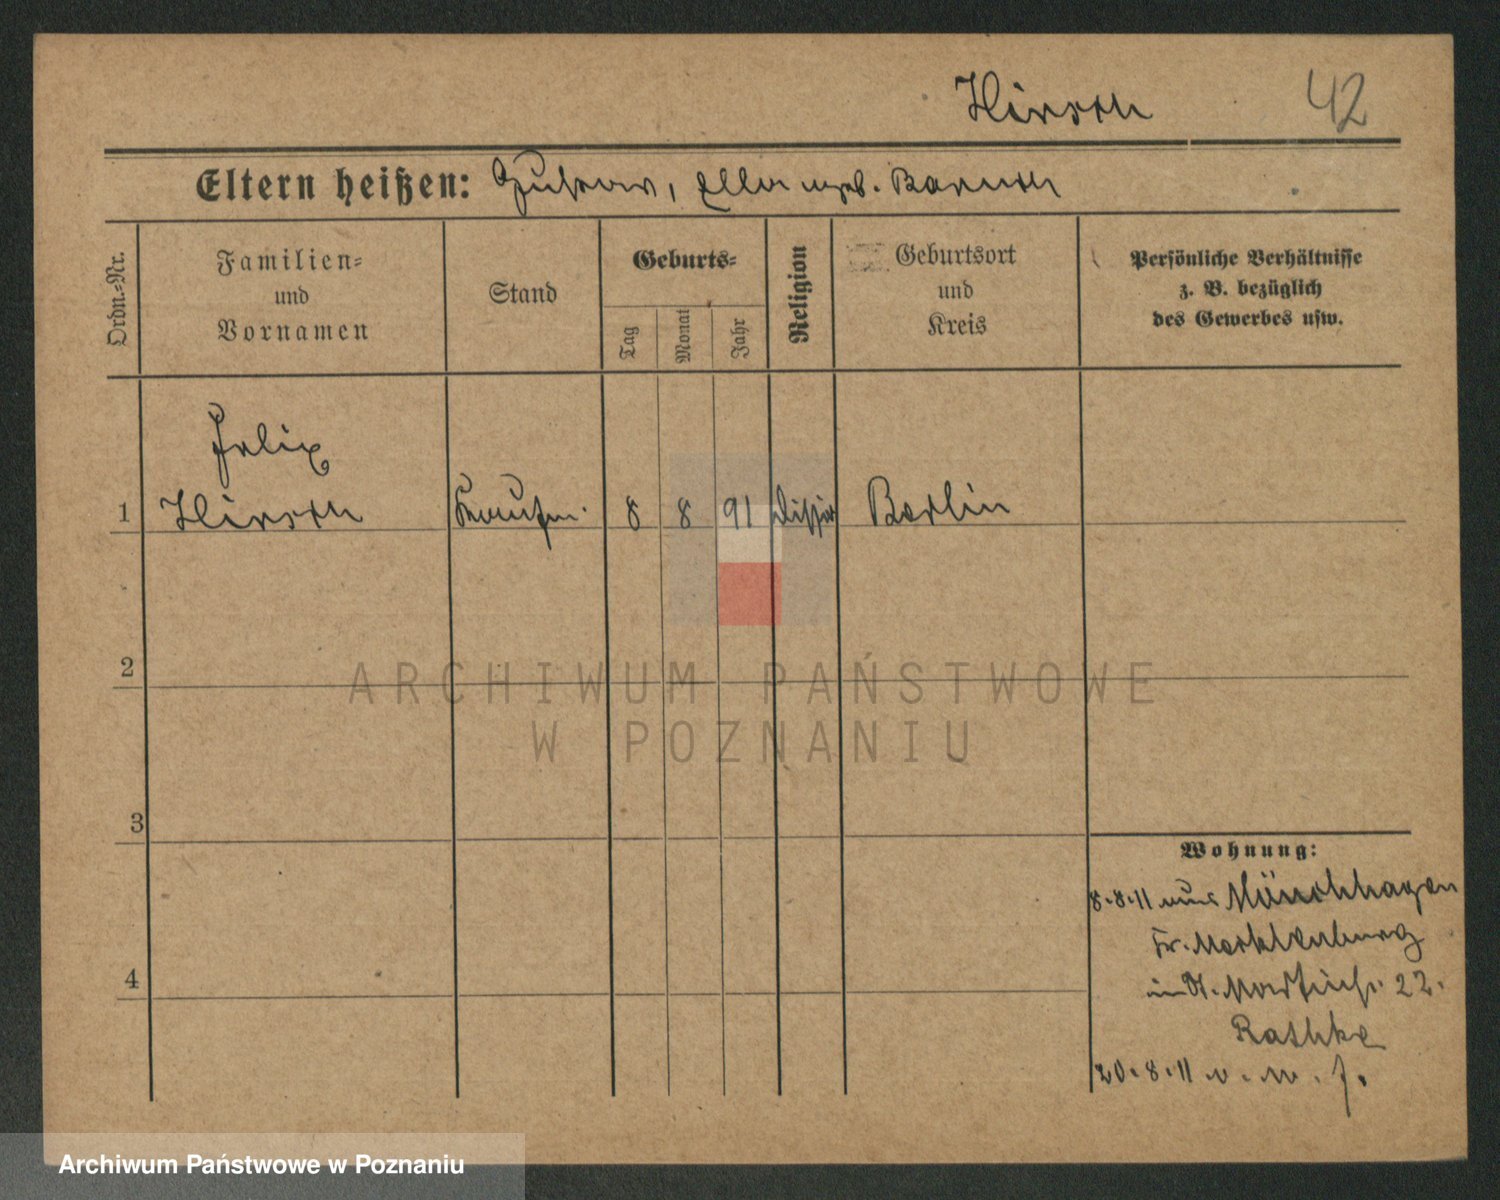 Hirsch 42
Eltern heißen: Gustav, Ella geb. Baruch
Ordn.-Nr.
Familien-
und
Vornamen
Stand
Geburts-
Tag
Monat
Jahr
Religion
Geburtsort
und
Kreis
Persönliche Verhältnisse
z. B. bezüglich
des Gewerbes usw.
Felix
1 Hirsch Kaufm. 8 8 91 Dissid Berlin
2
3
4
Wohnung:
8.8.11 aus Mönchhagen
Fr. Mecklenburg
in St. Martinstr. 22.
Rathke
20.8.11 v. w. f.
ARCHIWUM PAŃSTWOWE
W POZNANIU
Archiwum Państwowe w Poznaniu